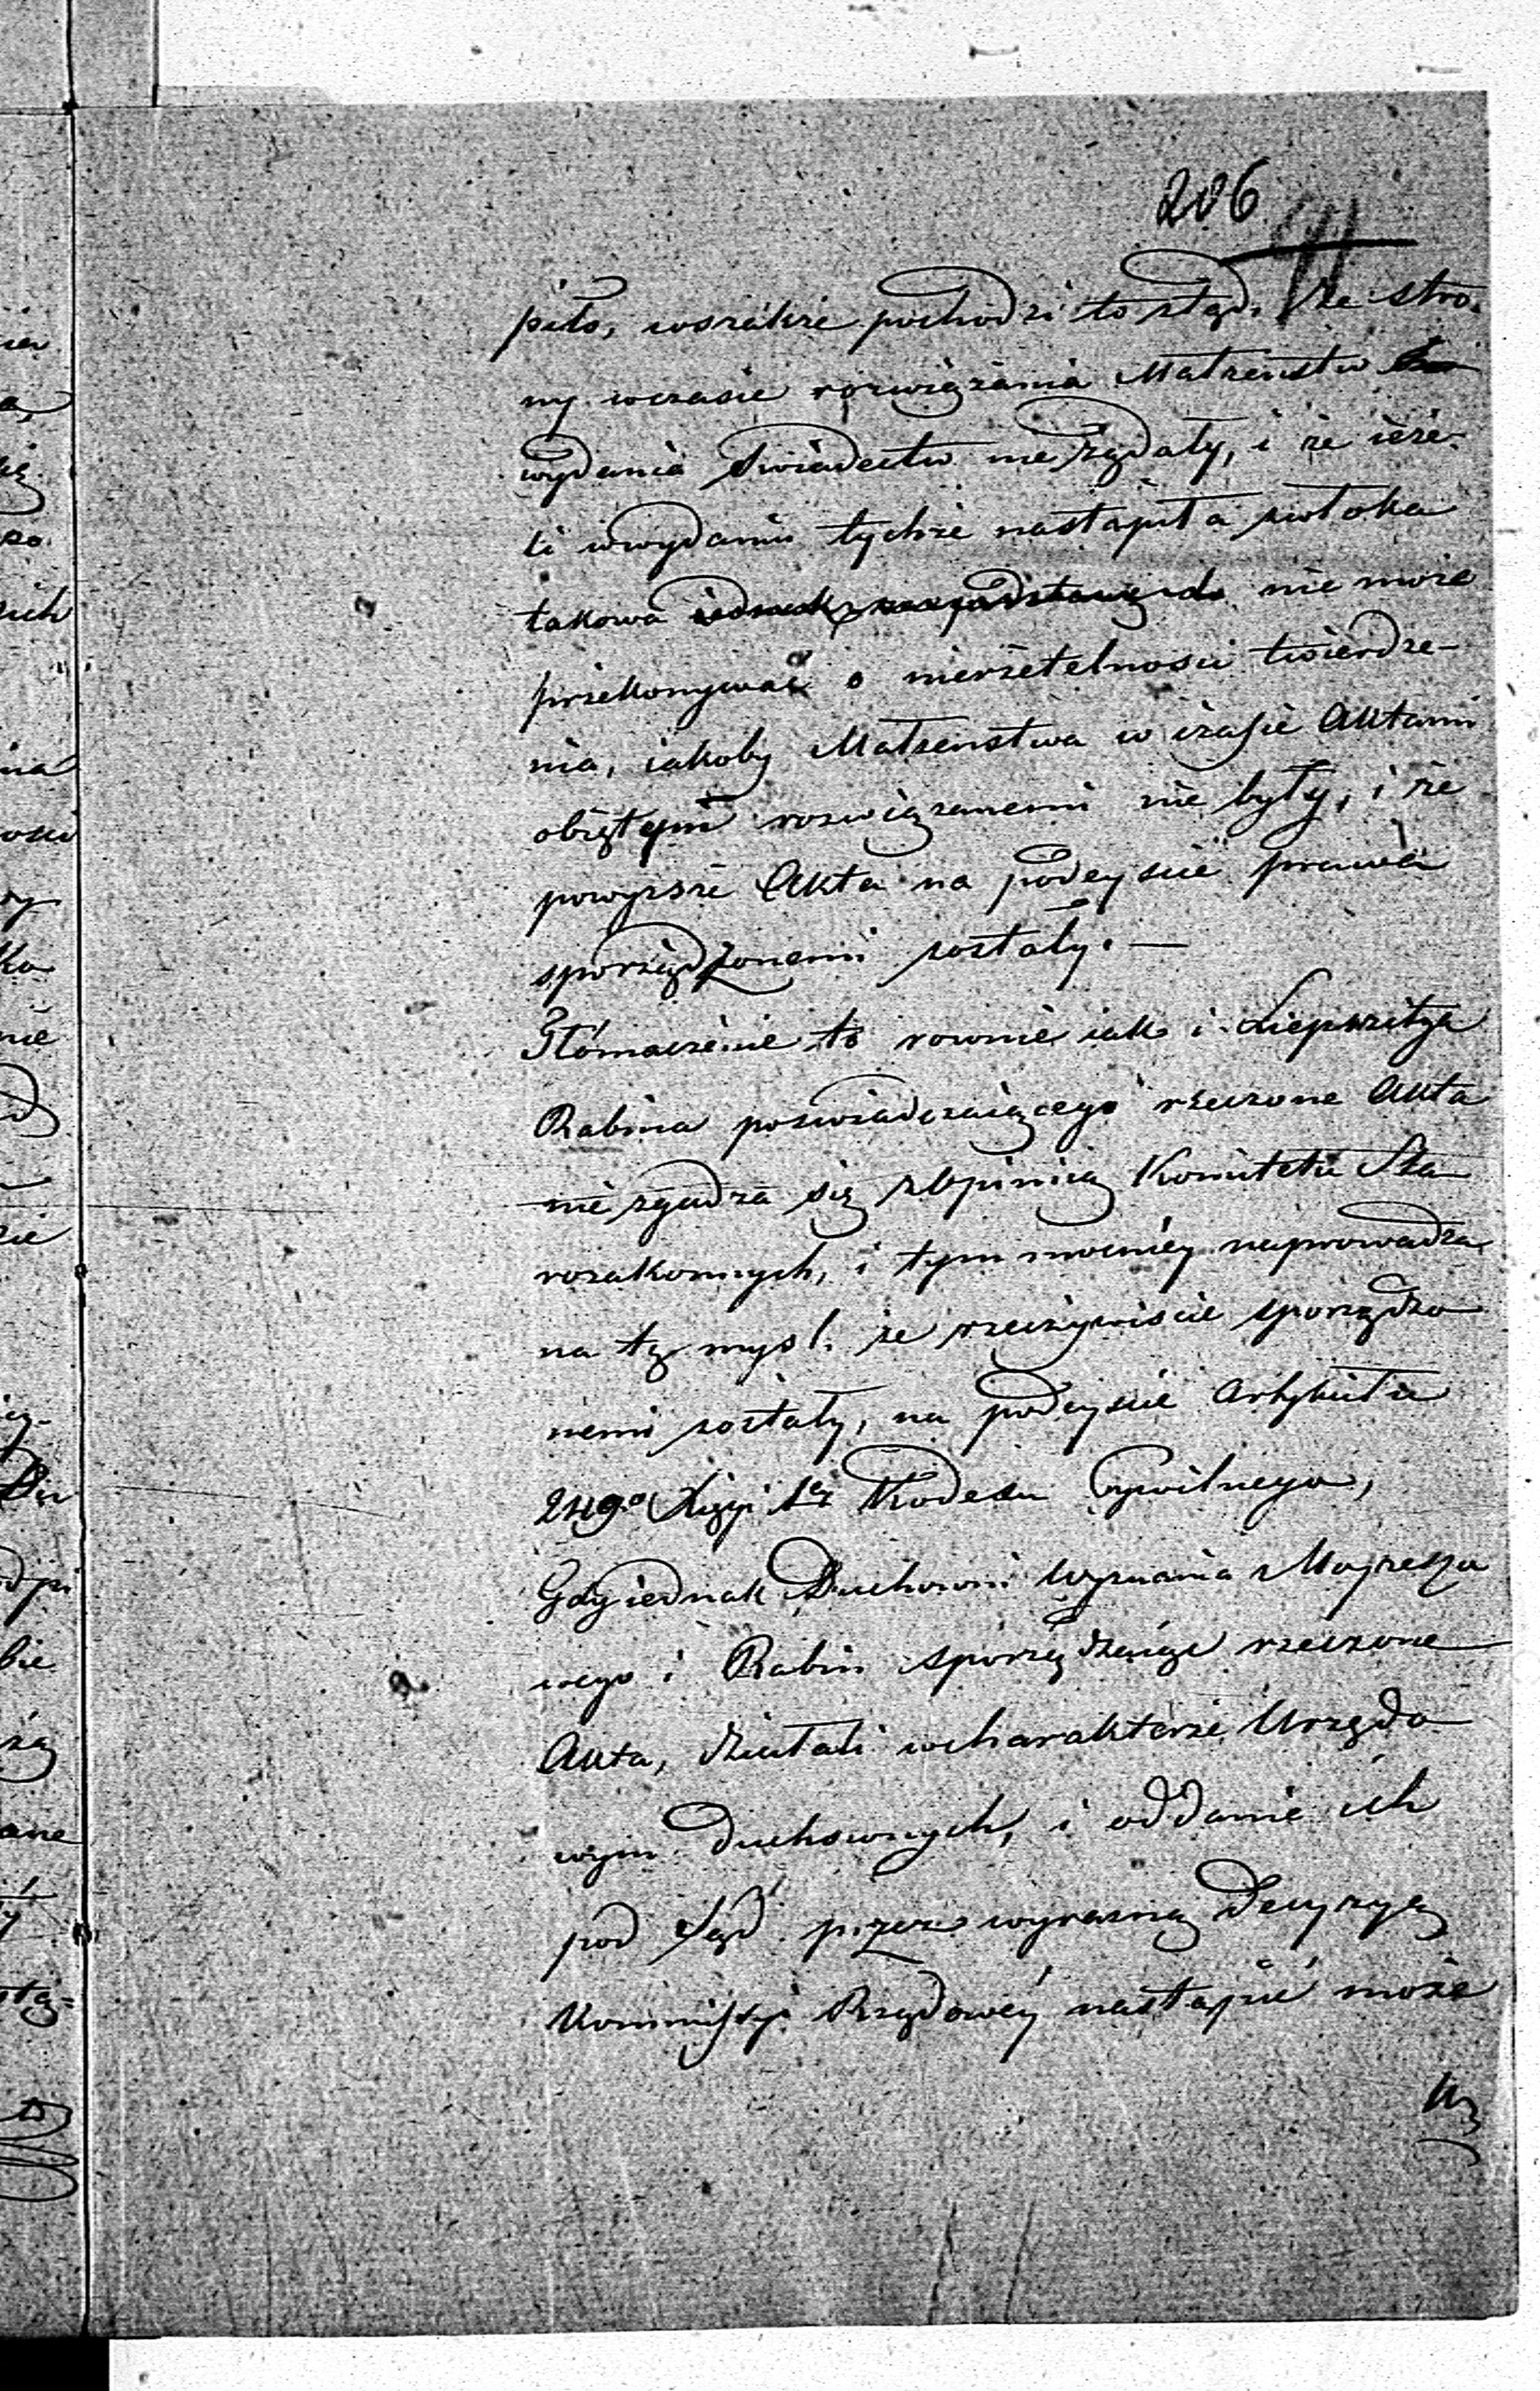 206
piło, wszakże pochodzi to ztąd, że stro-
ny wczasie rozwiązania Małżeństw
wydania Świadectw nie żądały, i że ieże-
li wwydaniu tychże nastąpiła zwłoka
takowa iednak nie może
przekonywać o nierzetelnosci twierdze-
nia, iakoby Małżenstwa w czasie Aktami
obiętym rozwiązanemi nie były, i że
powyższe Akta na podeyście prawa
sporządzonemi zostały. —
Tłómaczenie to rownie iak i Liepszitza
Rabina poswiadczaiącego rzeczone Akta
nie zgadza się z Opinią Komitetu Sta
rozakonnych, i tym mocniey naprowadza
na tę mysl, że rzeczywiscie sporządzo
nemi zostały, na podeyscie Artykułu
249º Xięgi 1ey Kodexu Cywilnego,
Gdy iednak Duchowni Wyznania Moyżeszo
wego i Rabin sporządzaiąc rzeczone
Akta, działali wcharakterze Urzędo
wym Duchownych, i oddanie ich
pod Sąd przez wyraźną Decyzyą
Kommissyi Rządowéy nastąpić może